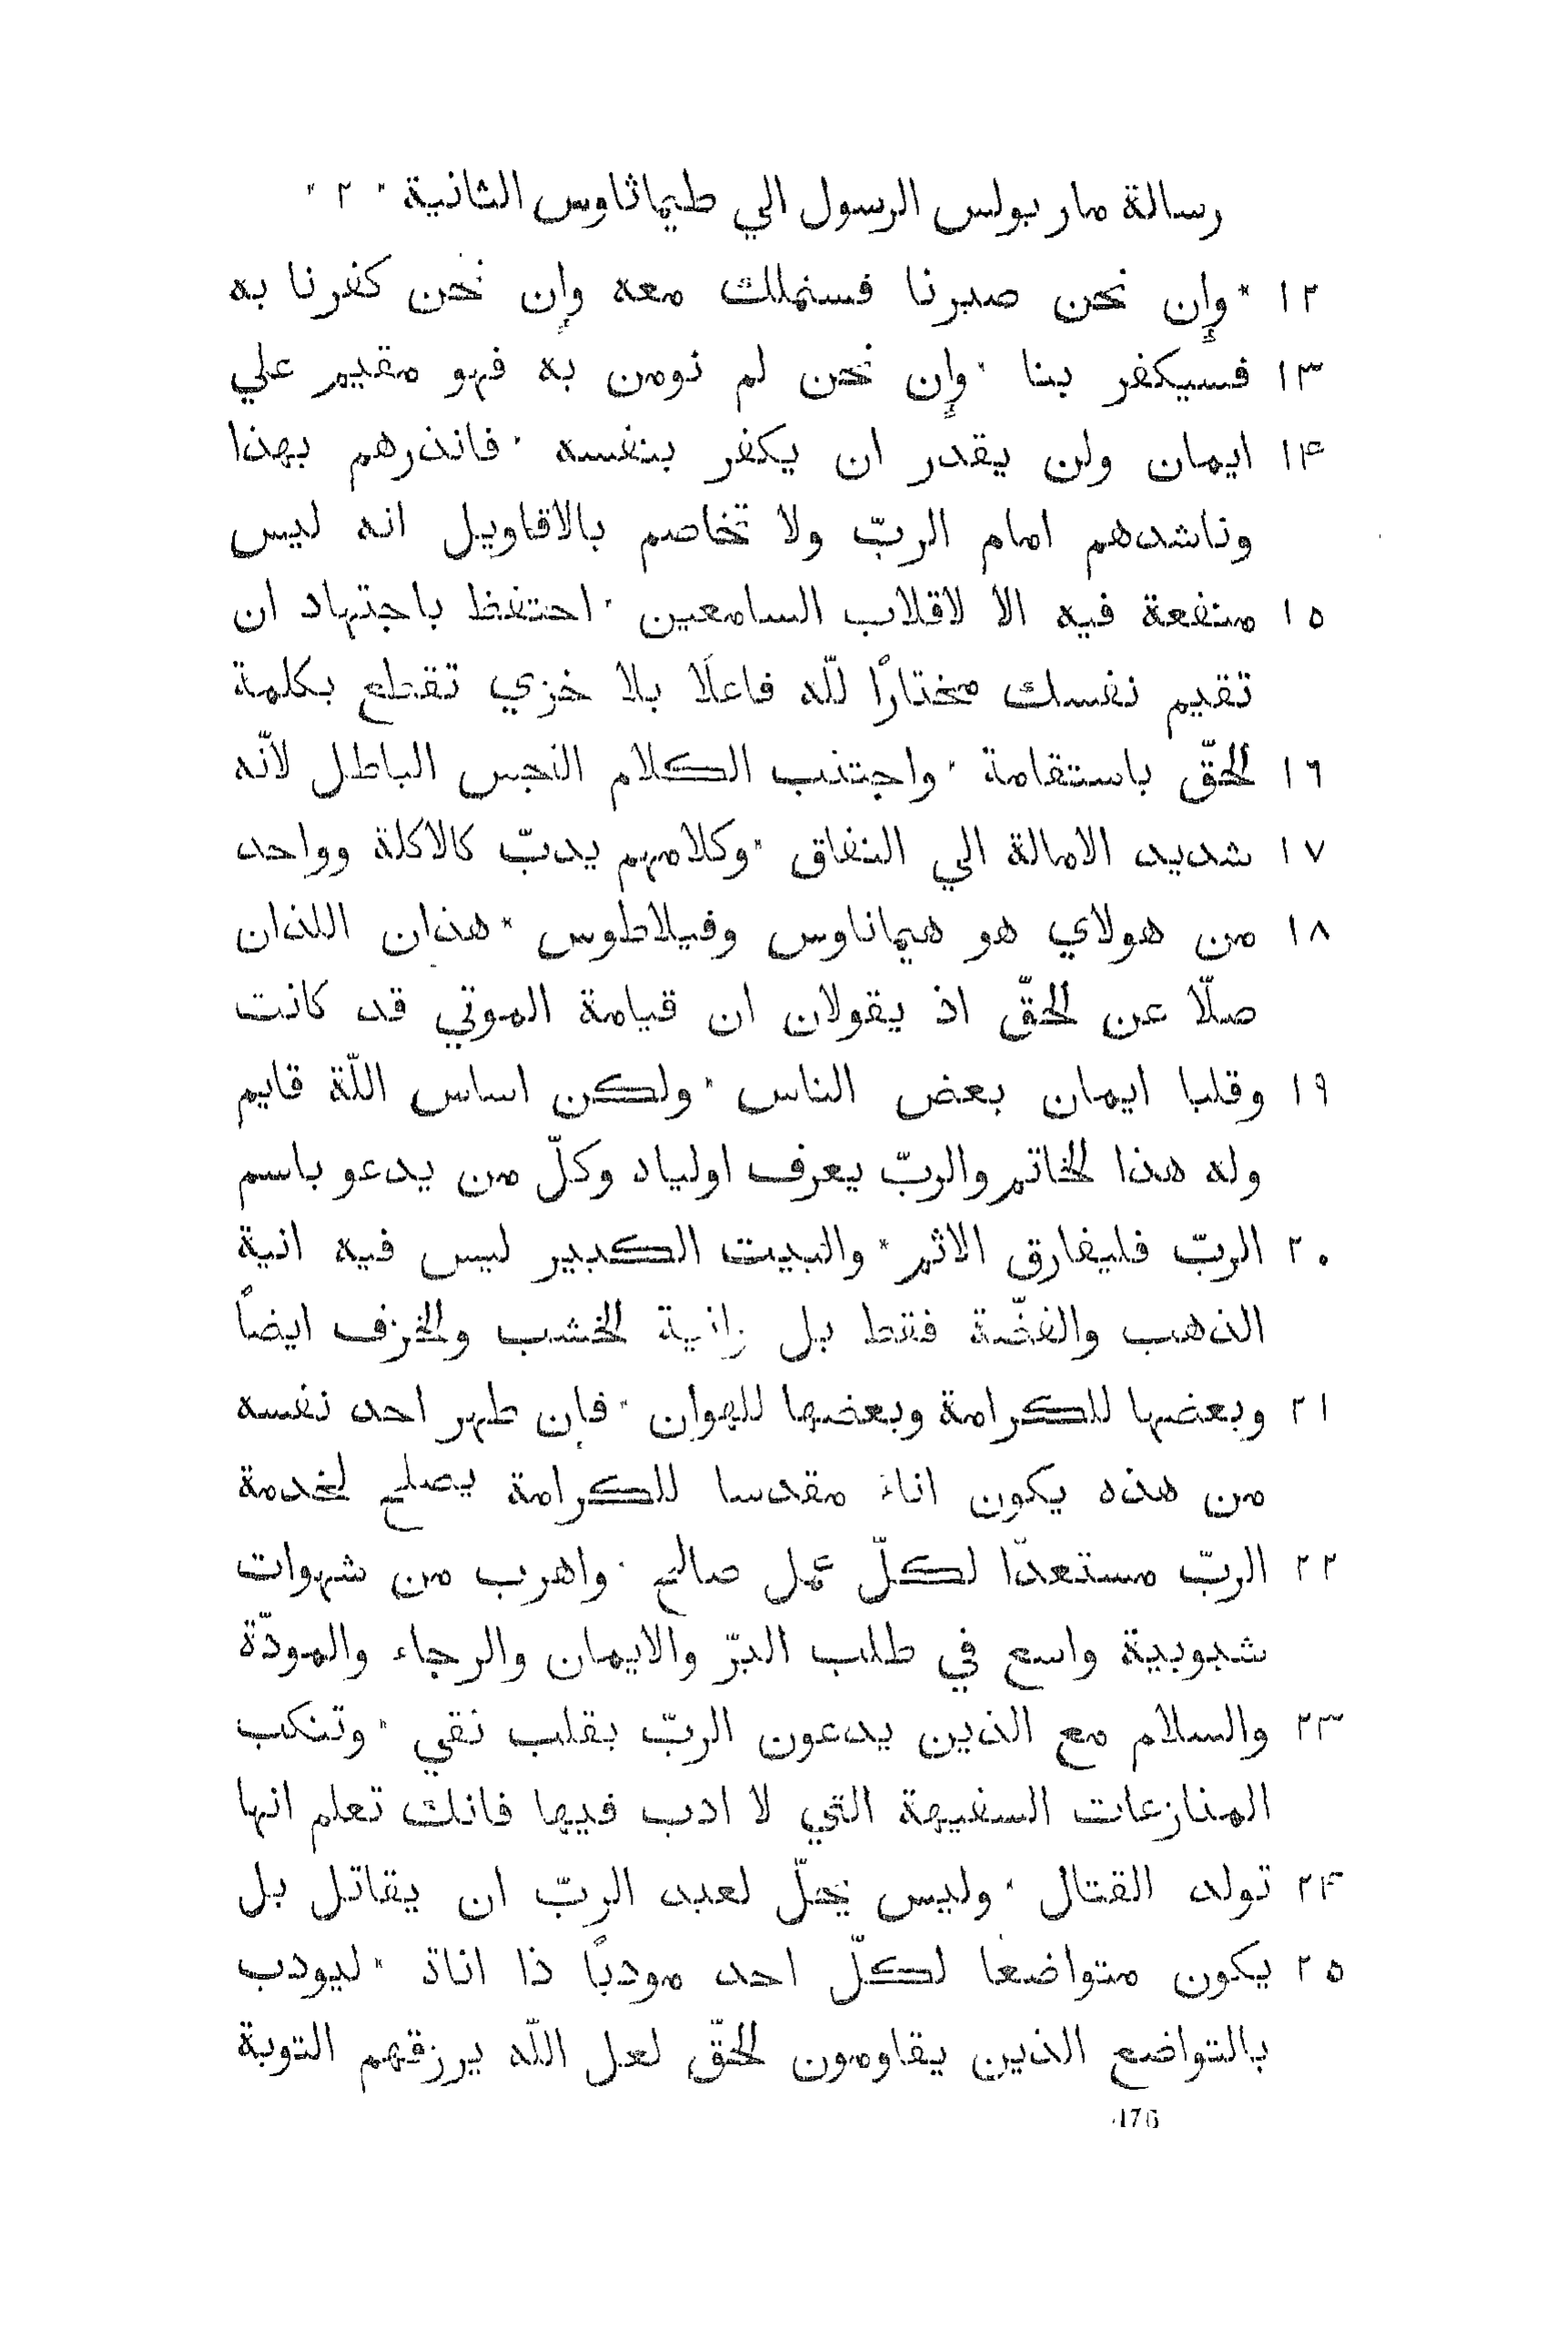 رسالة مار بولس الرسول الي طيماثاوس الثانية * ٢ *
١٢ * وإن نحن صبرنا فسنملك معه وإن نحن كفرنا به
١٣ فسيكفر بنا * وإن نحن لم نومن به فهو مقيم علي
١٤ ايمان ولن يقدر ان يكفر بنفسه * فانذرهم بهذا
وناشدهم امام الربّ ولا تخاصم بالاقاويل انه ليس
١٥ منفعة فيه الا لاقلاب السامعين * احتفظ باجتهاد ان
تقيم نفسك مختارًا للّه فاعلًا بلا خزي تقطع بكلمة
١٦ الحقّ باستقامة * واجتنب الكلام النجس الباطل لانّه
١٧ شديد الامالة الي النفاق * وكلامهم يدبّ كالاكلة وواحد
١٨ من هولاي هو هيماناوس وفيلاطوس * هذان اللذان
صلّا عن الحقّ اذ يقولان ان قيامة الموتي قد كانت
١٩ وقلبا ايمان بعض الناس * ولكن اساس اللّة قايم
وله هذا الخاتم والربّ يعرف اولياد وكلّ من يدعو باسم
٢٠ الربّ فليفارق الاثم * والبيت الكبير ليس فيه انية
الذهب والفضّة فقط بل وانية الخشب والخزف ايضاً
٢١ وبعضها للكرامة وبعضها للهوان * فإن طهر احد نفسه
من هذه يكون اناء مقدسا للكرامة يصلح لخدمة
٢٢ الربّ مستعدّا لكلّ عمل صالح * واهرب من شهوات
شبوبية واسع في طلب البرّ والايمان والرجاء والمودّة
٢٣ والسلام مع الذين يدعون الربّ بقلب نقي * وتنكب
المنازعات السفيهة التي لا ادب فيها فانك تعلم انها
٢٤ تولد القتال * وليس يحلّ لعبد الربّ ان يقاتل بل
٢٥ يكون متواضعًا لكلّ احد مودبًا ذا اناة * ليودب
بالتواضع الذين يقاومون الحقّ لعل اللّه يرزقهم التوبة
476